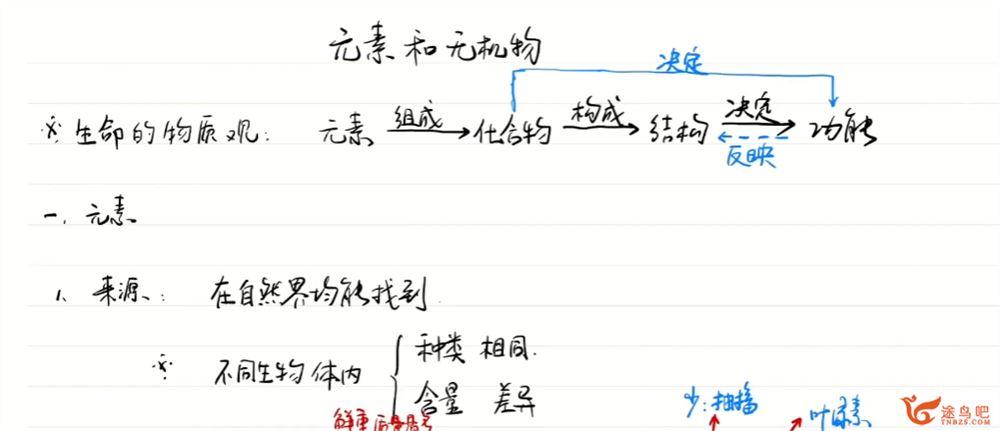 元素和无机物
决定
※生命的物质观: 元素 组成 化合物 构成 结构 决定 功能
反映
一. 元素
1. 来源: 在自然界均能找到.
※ 不同生物体内 种类 相同.
含量 差异
鲜重
少:抽搐
叶绿素
途鸟吧
TNBZS.COM